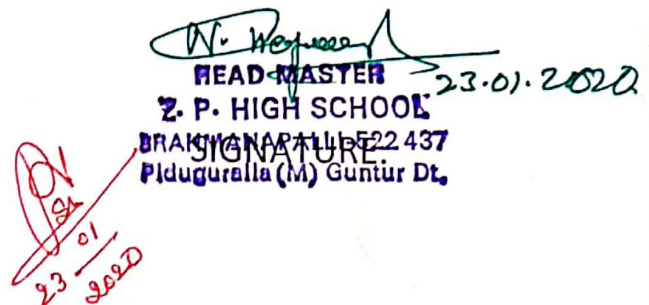 HEAD MASTER
23.01.2020
Z. P. HIGH SCHOOL
BRAHMANAPALLI-522 437
SIGNATURE:
Piduguralla (M) Guntur Dt.
23
01
2020